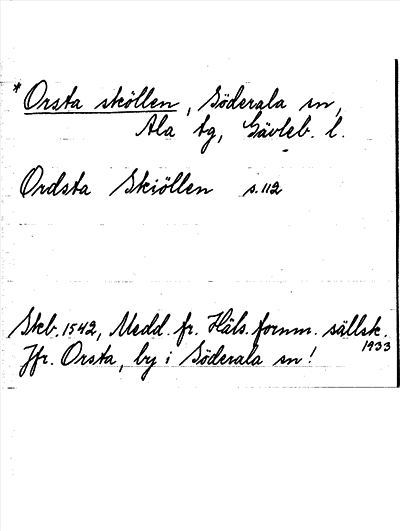 * Orsta sköllen, Söderala sn,
Ala tg, Gävleb. l.
Ordsta Skiöllen s. 112
Skb. 1542, Medd. fr. Häls. fornm. sällsk.
1933
Jfr. Orsta, by i Söderala sn!